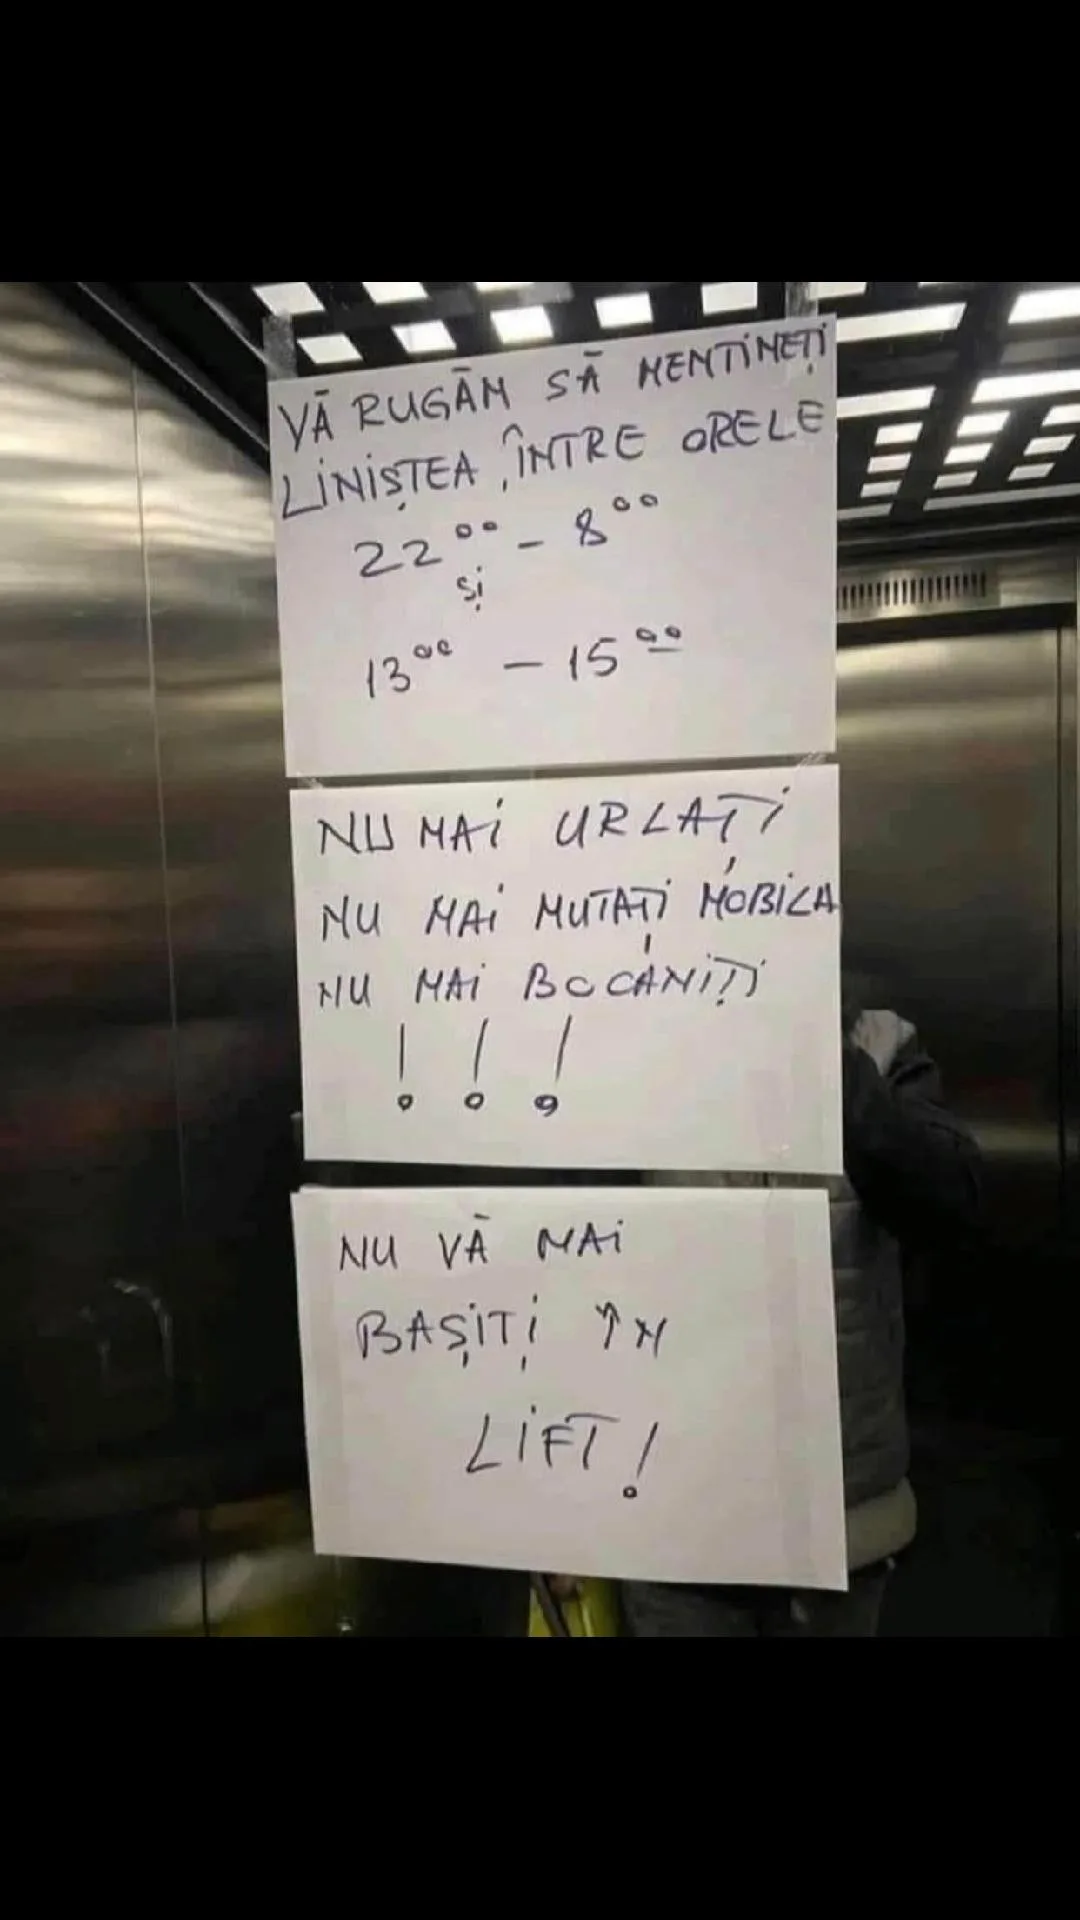 VĂ RUGĂM SĂ MENTINEȚI
LINIȘTEA, ÎNTRE ORELE
22⁰⁰ - 8⁰⁰
și
13⁰⁰ - 15⁰⁰
NU MAI URLAȚI
NU MAI MUTAȚI MOBILA
NU MAI BOCĂNIȚI
! ! !
NU VĂ MAI
BAȘIȚI ÎN
LIFT!